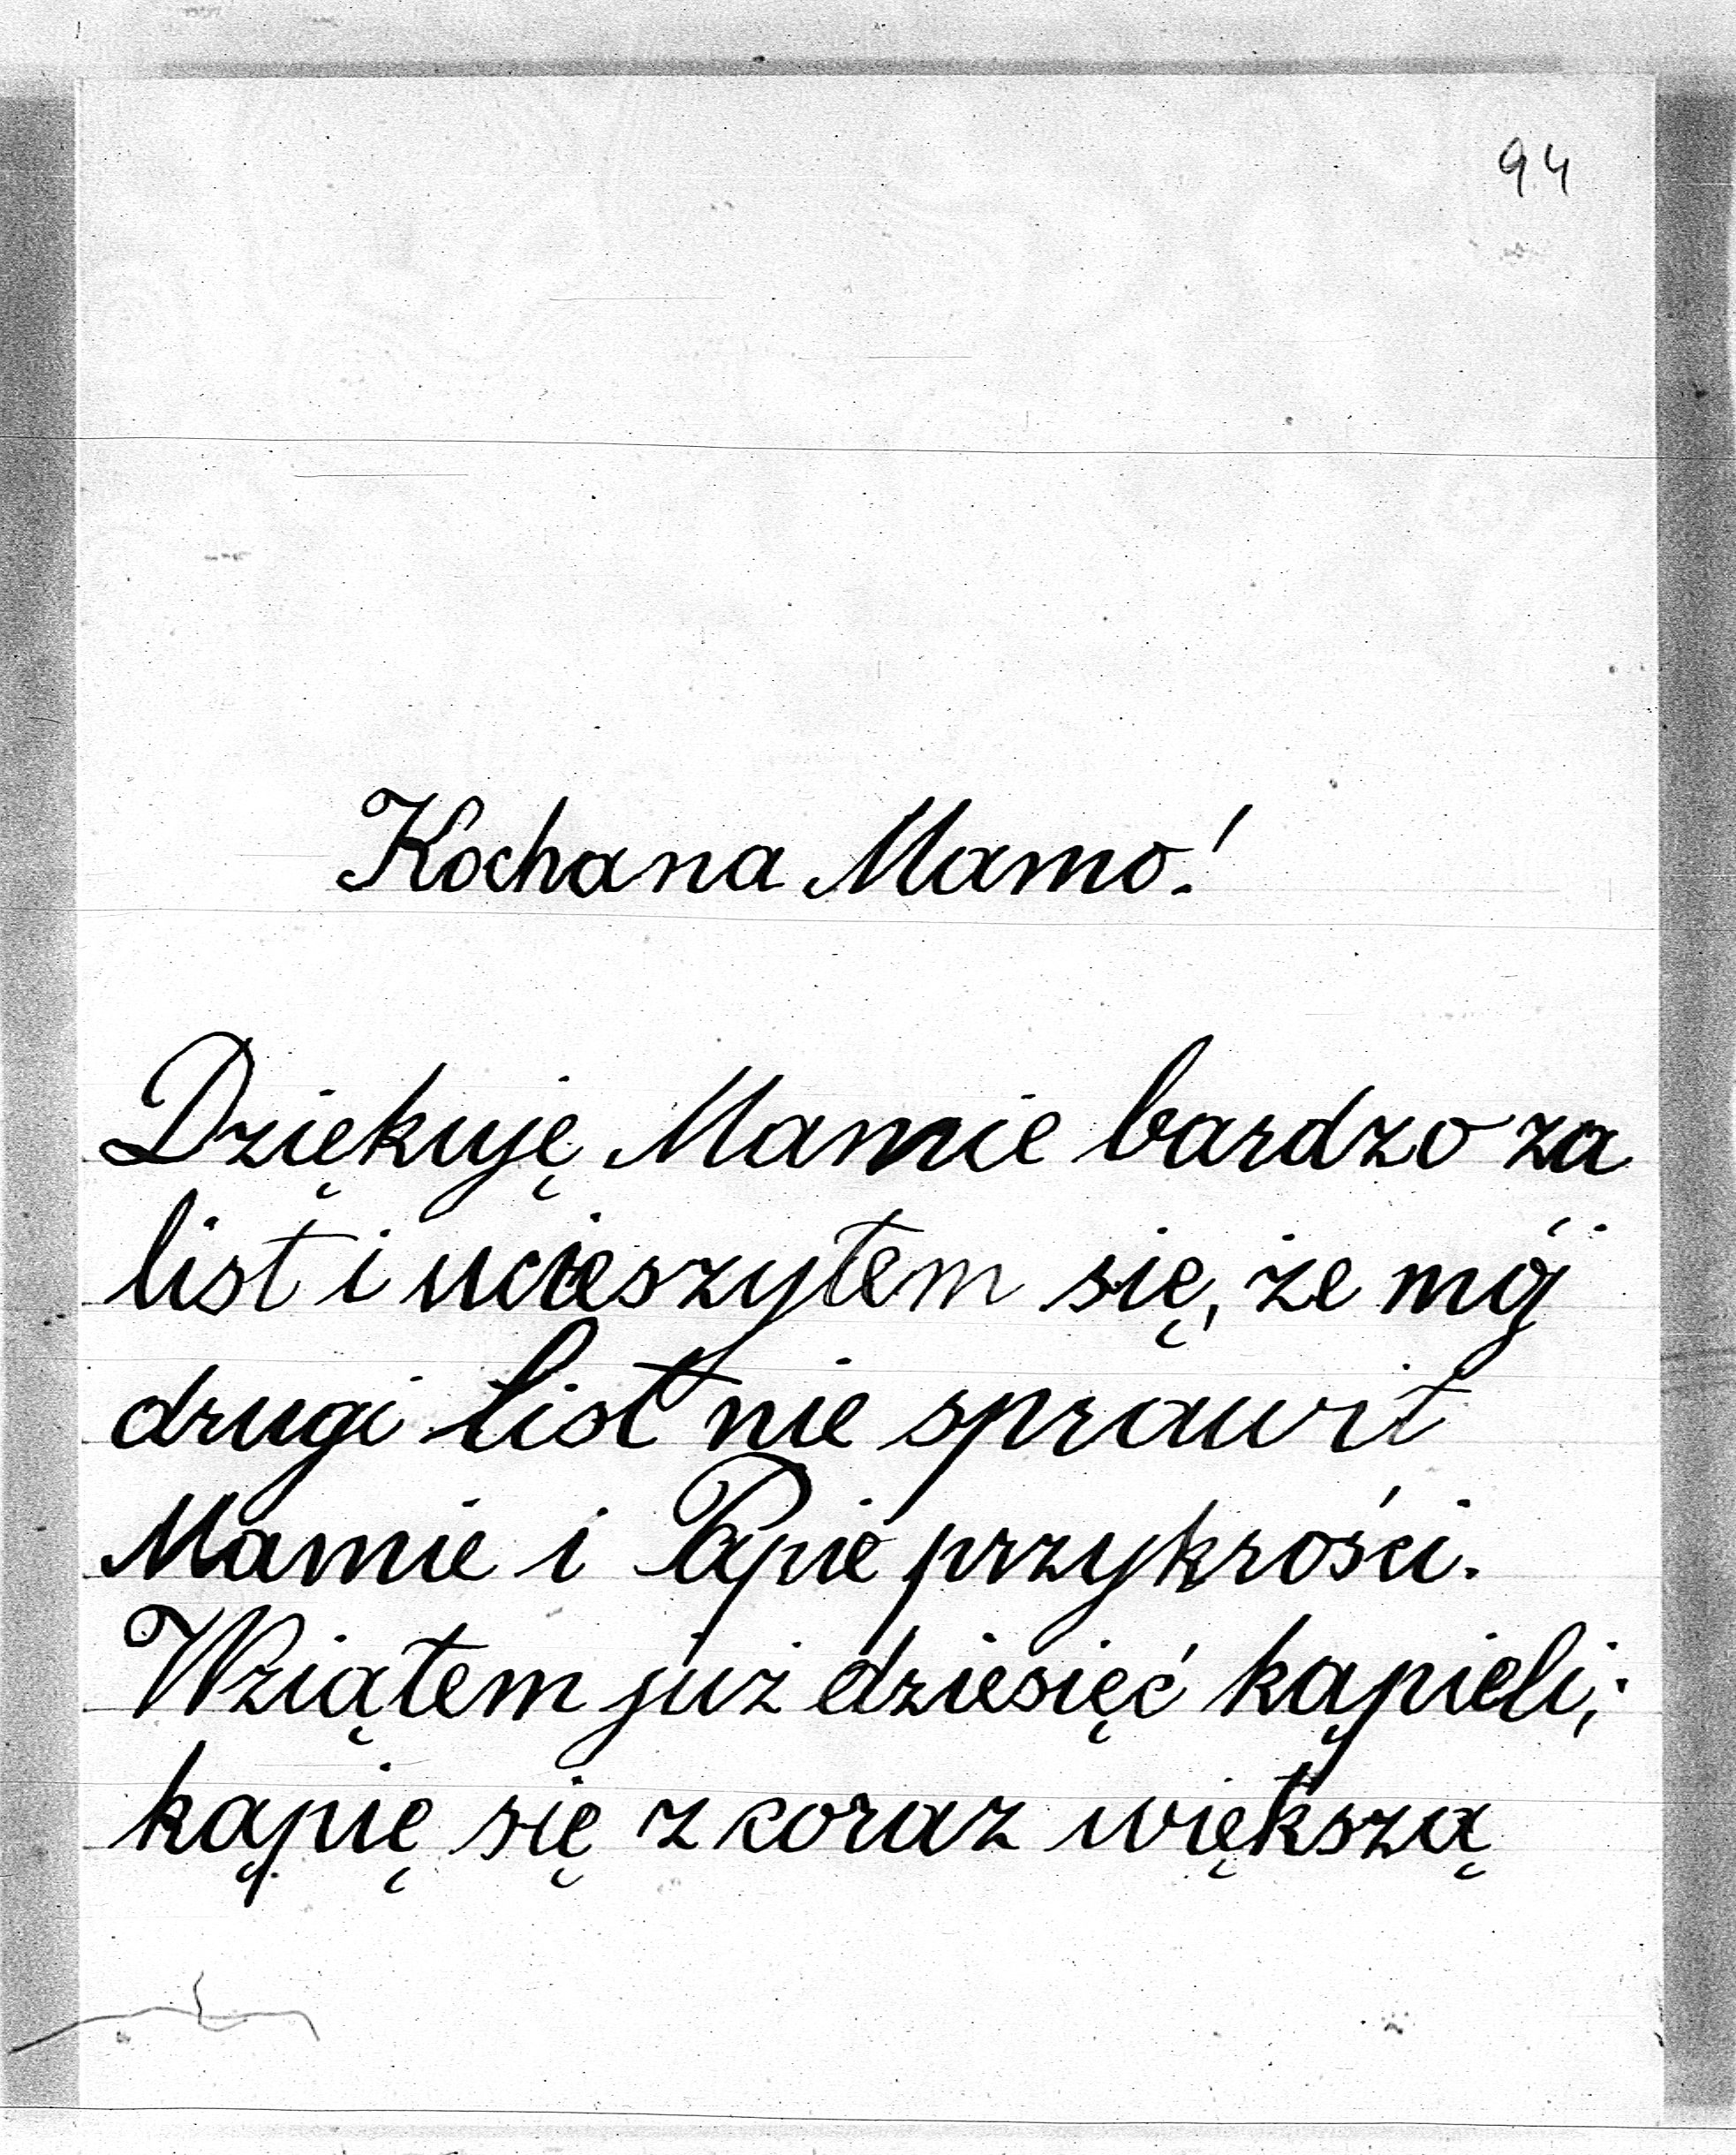 94
Kochana Mamo!
Dziękuję Mamie bardzo za
list i ucieszyłem się, że mój
drugi list nie sprawił
Mamie i Papie przykrości.
Wziąłem już dziesięć kąpieli;
kąpię się z coraz większą